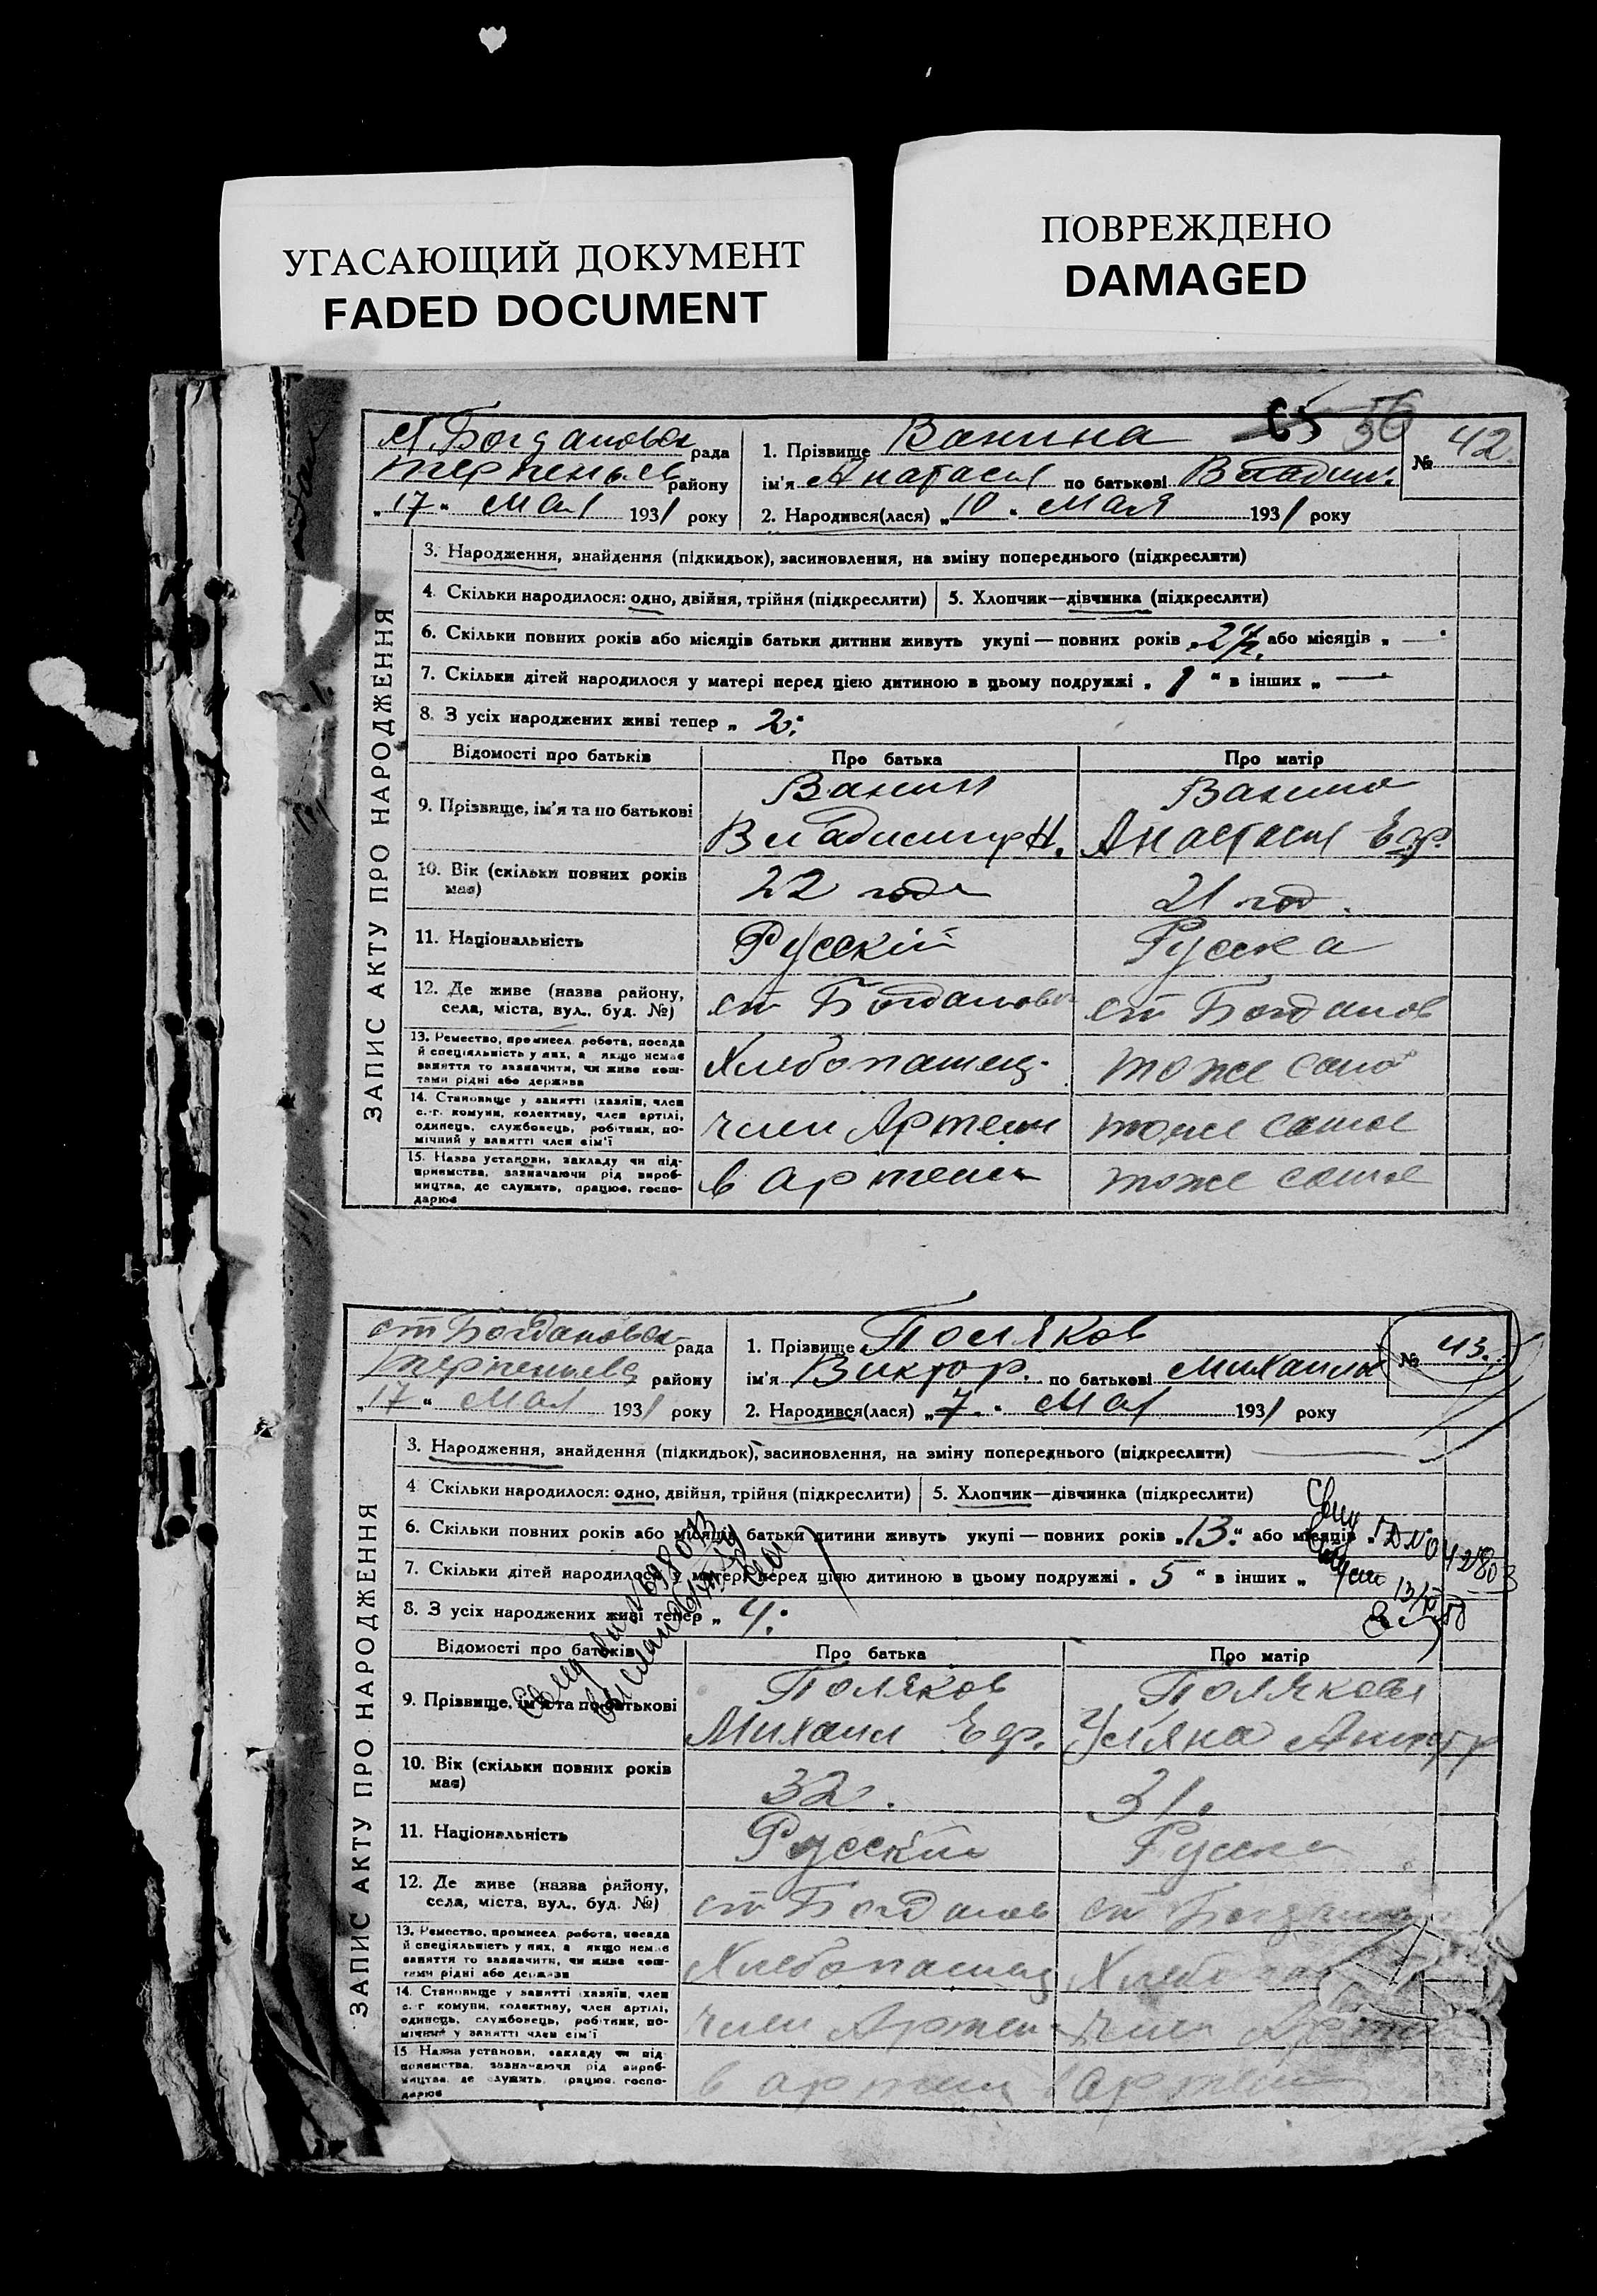 УГАСАЮЩИЙ ДОКУМЕНТ
FADED DOCUMENT
ПОВРЕЖДЕНО
DAMAGED
65 56
ст. Богдановск рада
1. Прізвище Ванина
№ 42.
Терпеньев району
ім'я Анатасия по батькові Владим.
„17“ Мая 1931 року
2. Народився(лася) „10“ Мая 1931 року
ЗАПИС АКТУ ПРО НАРОДЖЕННЯ
3. Народження, знайдення (підкидьок), засиновлення, на зміну попереднього (підкреслити)
4. Скільки народилося: одно, двійня, трійня (підкреслити) 5. Хлопчик—дівчинка (підкреслити)
6. Скільки повних років або місяців батьки дитини живуть укупі — повних років „2 г. або місяців „ — “
7. Скільки дітей народилося у матері перед цією дитиною в цьому подружжі „ 1 “ в інших „ —
8. З усіх народжених живі тепер „ 2.
Відомості про батьків Про батька Про матір
9. Прізвище, ім'я та по батькові Ванин Ванина
Владимир Н. Анастасия Еф.
10. Вік (скільки повних років має) 22 года 21 год.
11. Національність Русский Русска
12. Де живе (назва району, села, міста, вул., буд. №) ст Богдановк ст Богданов
13. Ремество, промисел, робота, посада й спеціяльність у них, а якщо немає заняття то зазначити, чи живе коштами рідні або держава Хлебопашец. тоже само
14. Становище у занятті (хазяїн, член с.-г. комуни, колективу, член артілі, одинець, службовець, робітник, помічний у занятті член сім'ї член Артели тоже самое
15. Назва установи, закладу чи підприємства, зазначаючи рід виробництва, де служить, працює, господарює в артели тоже самое
ст Богдановск рада
1. Прізвище Поляков
№ 43.
Терпеньев району
ім'я Виктор. по батькові Михаил
„17“ Мая 1931 року
2. Народився(лася) „7“ Мая 1931 року
ЗАПИС АКТУ ПРО НАРОДЖЕННЯ
3. Народження, знайдення (підкидьок), засиновлення, на зміну попереднього (підкреслити)
4 Скільки народилося: одно, двійня, трійня (підкреслити) 5. Хлопчик—дівчинка (підкреслити)
6. Скільки повних років або місяців батьки дитини живуть укупі — повних років „13“ або місяців
7. Скільки дітей народилося у матері перед цією дитиною в цьому подружжі „ 5 “ в інших „
8. З усіх народжених живі тепер „ 4.
Відомості про батьків Про батька Про матір
9. Прізвище, ім'я та по батькові Поляков Полякова
Михаил Еф. Уляна
10. Вік (скільки повних років має) 32. 31.
11. Національність Русский Русска
12. Де живе (назва району, села, міста, вул., буд. №) ст Богданов ст
13. Ремество, промисел, робота, посада й спеціяльність у них, а якщо немає заняття то зазначити, чи живе коштами рідні або держава Хлебопашец
14. Становище у занятті (хазяїн, член с.-г. комуни, колективу, член артілі, одинець, службовець, робітник, помічний у занятті член сім'ї член Артели член
15 Назва установи, закладу чи підприємства, зазначаючи рід виробництва, де служить, працює, господарює в артели в артели